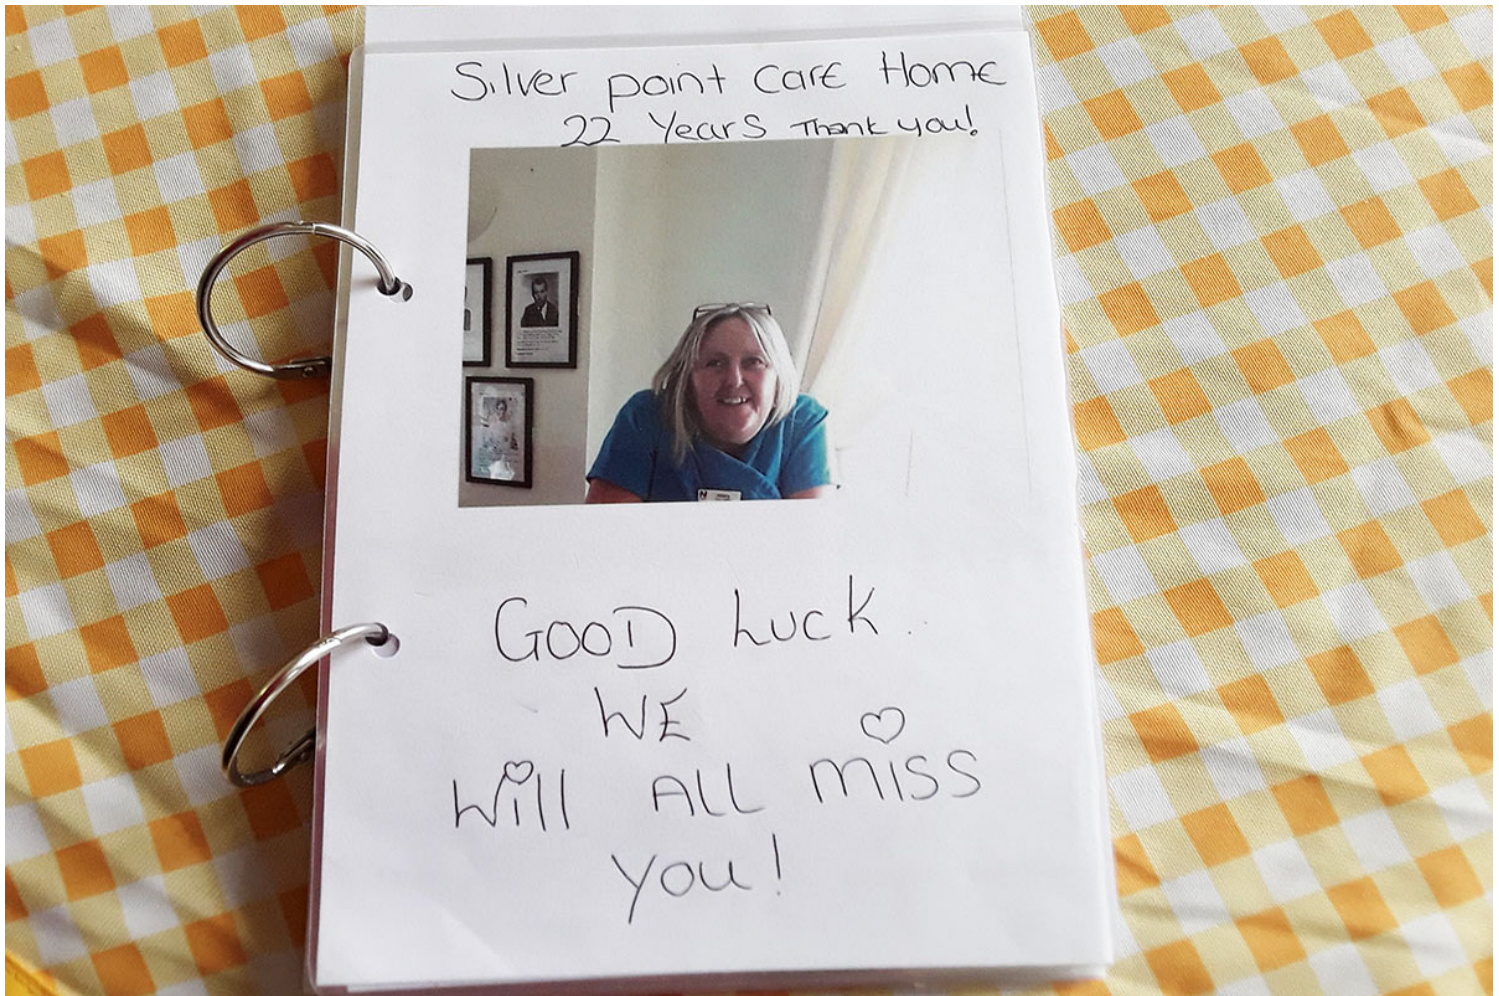 Silver point Care Home
22 Years Thank you!
GOOD Luck..
WE
Will ALL miss
you!